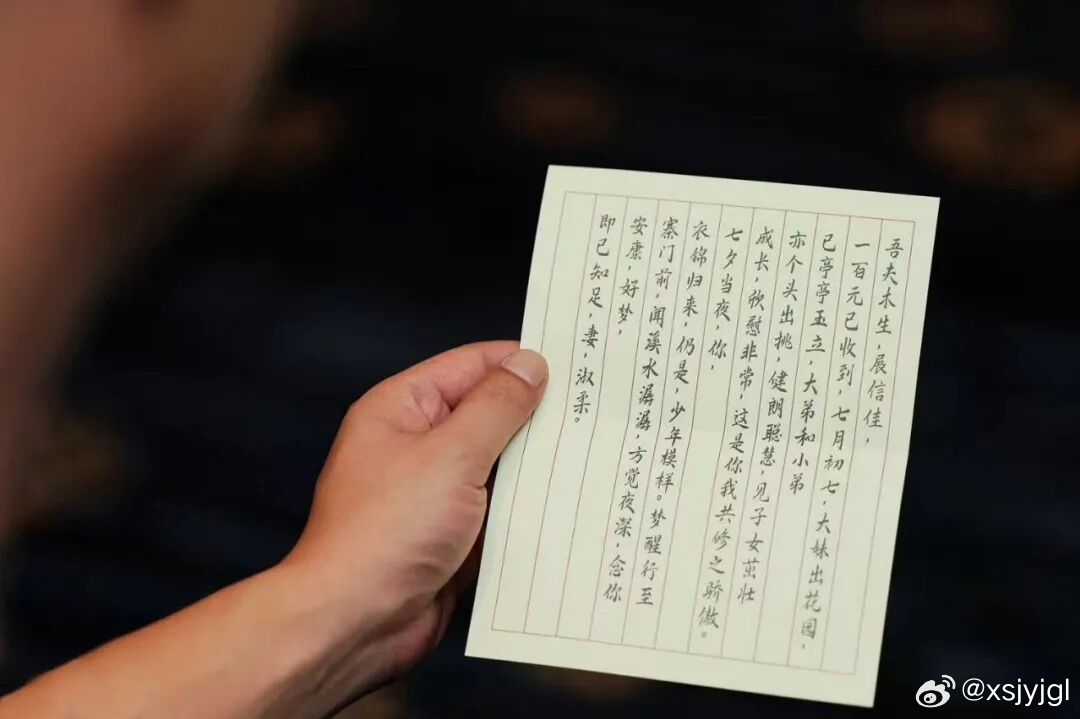 吾夫木生，展信佳，
一百元已收到，七月初七，大妹出花园，
已亭亭玉立，大弟和小弟
亦个头出挑，健朗聪慧，见子女茁壮
成长，欣慰非常，这是你我共修之骄傲。
七夕当夜，你，
衣锦归来，仍是，少年模样。梦醒行至
寨门前，闻溪水潺潺，方觉夜深，念你
安康，好梦，
即已知足，妻，淑柔。
@xsjyjgl